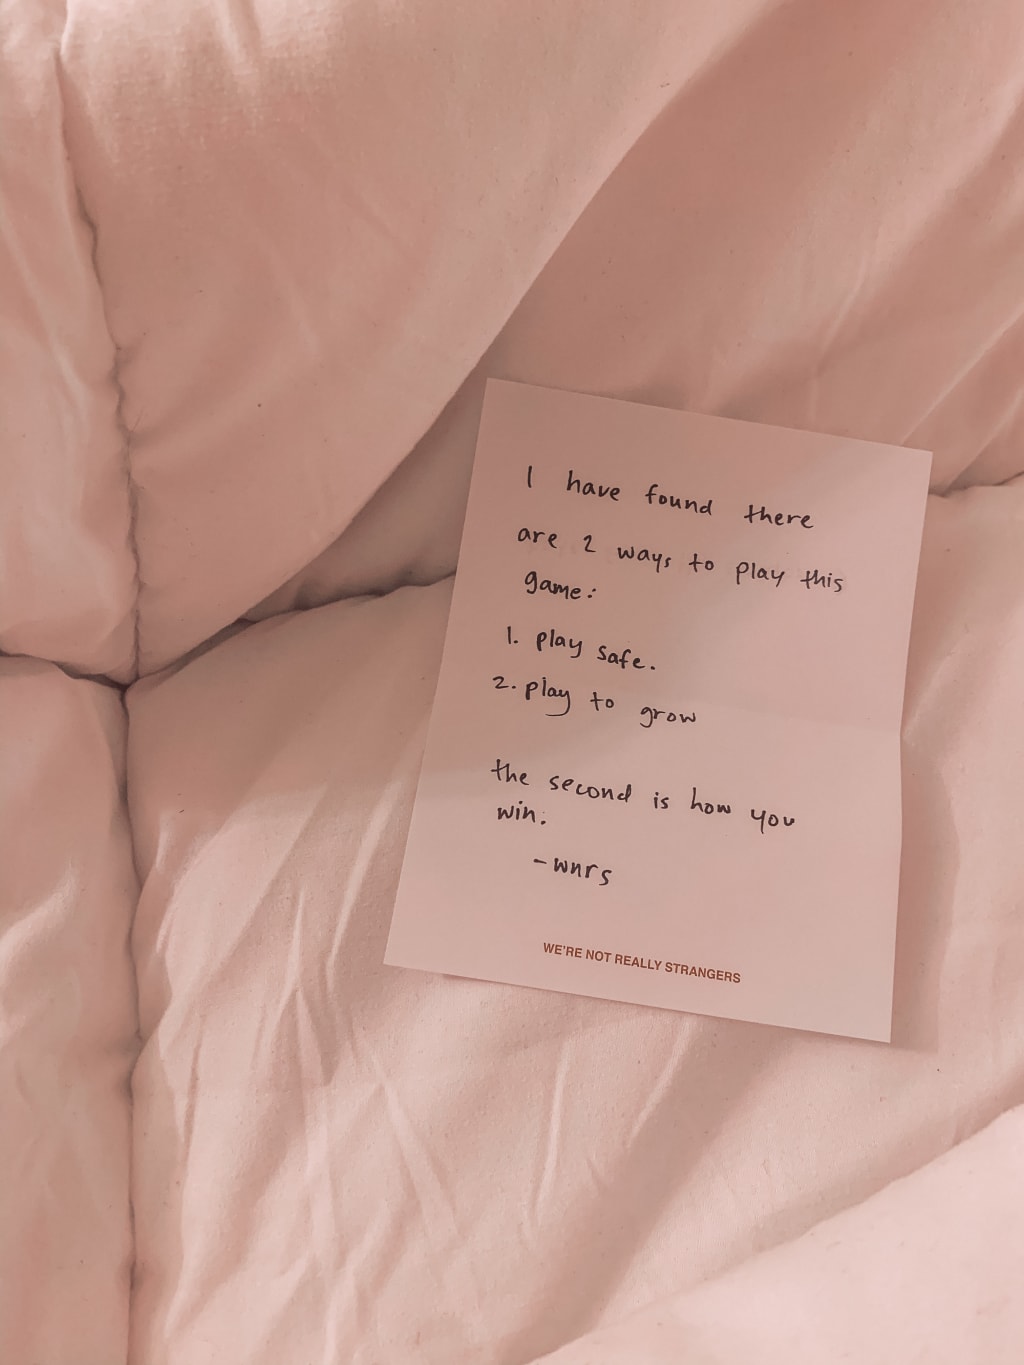 I have found there
are 2 ways to play this
game:
1. play safe.
2. play to grow
the second is how you
win.
- wnrs
WE'RE NOT REALLY STRANGERS